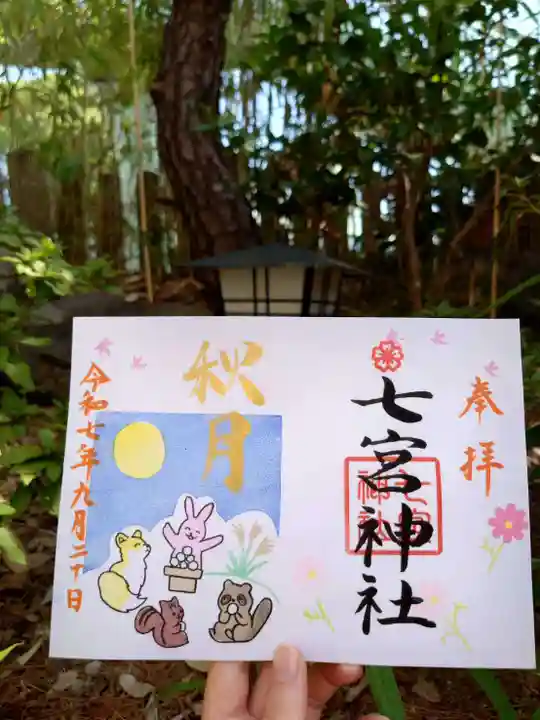 奉拝
七宮神社
七宮
神社
秋月
令和七年九月二十日